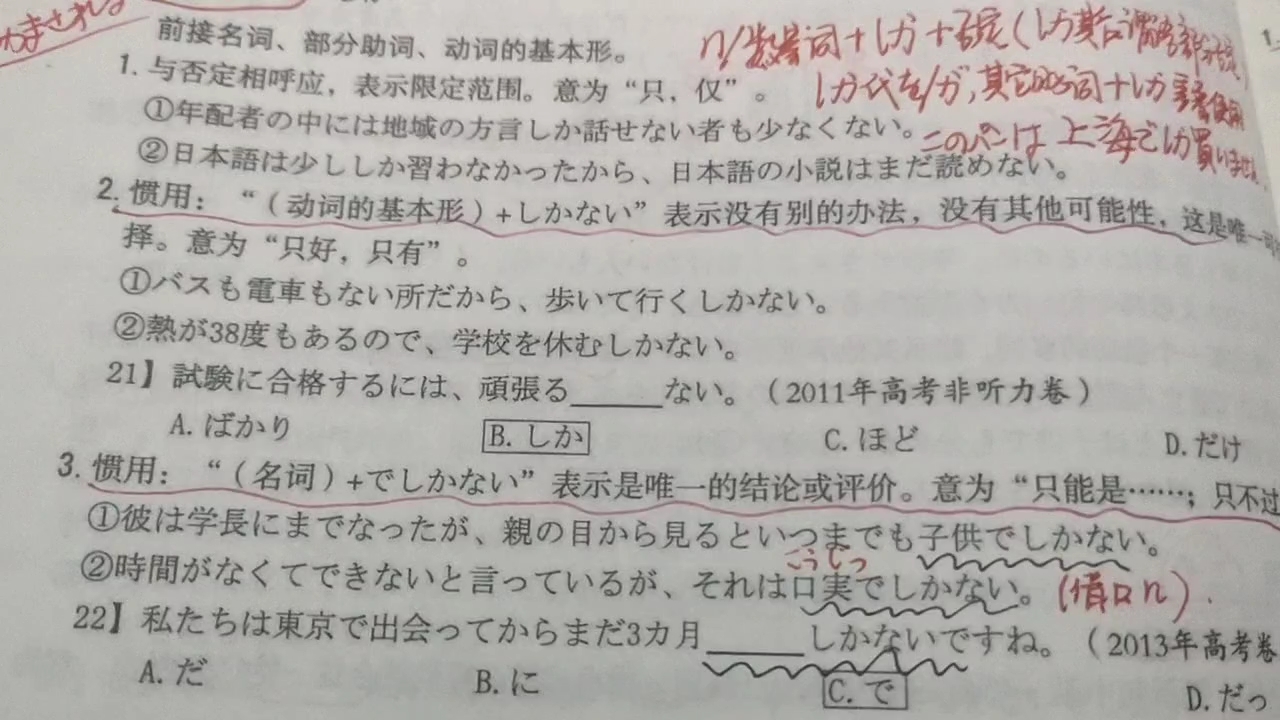 前接名词、部分助词、动词的基本形。
n/数量词+しか+否定(しか其后谓语部分否定)
1. 与否定相呼应，表示限定范围。意为“只，仅”。
しか代を/が,其它的词+しか
①年配者の中には地域の方言しか話せない者も少なくない。
このペンは上海でしか買いません
②日本語は少ししか習わなかったから、日本語の小説はまだ読めない。
2. 惯用：“（动词的基本形）+しかない”表示没有别的办法，没有其他可能性，这是唯一
择。意为“只好，只有”。
①バスも電車もない所だから、歩いて行くしかない。
②熱が38度もあるので、学校を休むしかない。
21】試験に合格するには、頑張る_____ない。（2011年高考非听力卷）
A. ばかり B. しか C. ほど D. だけ
3. 惯用：“（名词）+でしかない”表示是唯一的结论或评价。意为“只能是……；只不过
①彼は学長にまでなったが、親の目から見るといつまでも子供でしかない。
こうじつ
②時間がなくてできないと言っているが、それは口実でしかない。(借口n).
22】私たちは東京で出会ってからまだ3カ月_____しかないですね。（2013年高考卷
A. だ B. に C. で D. だっ